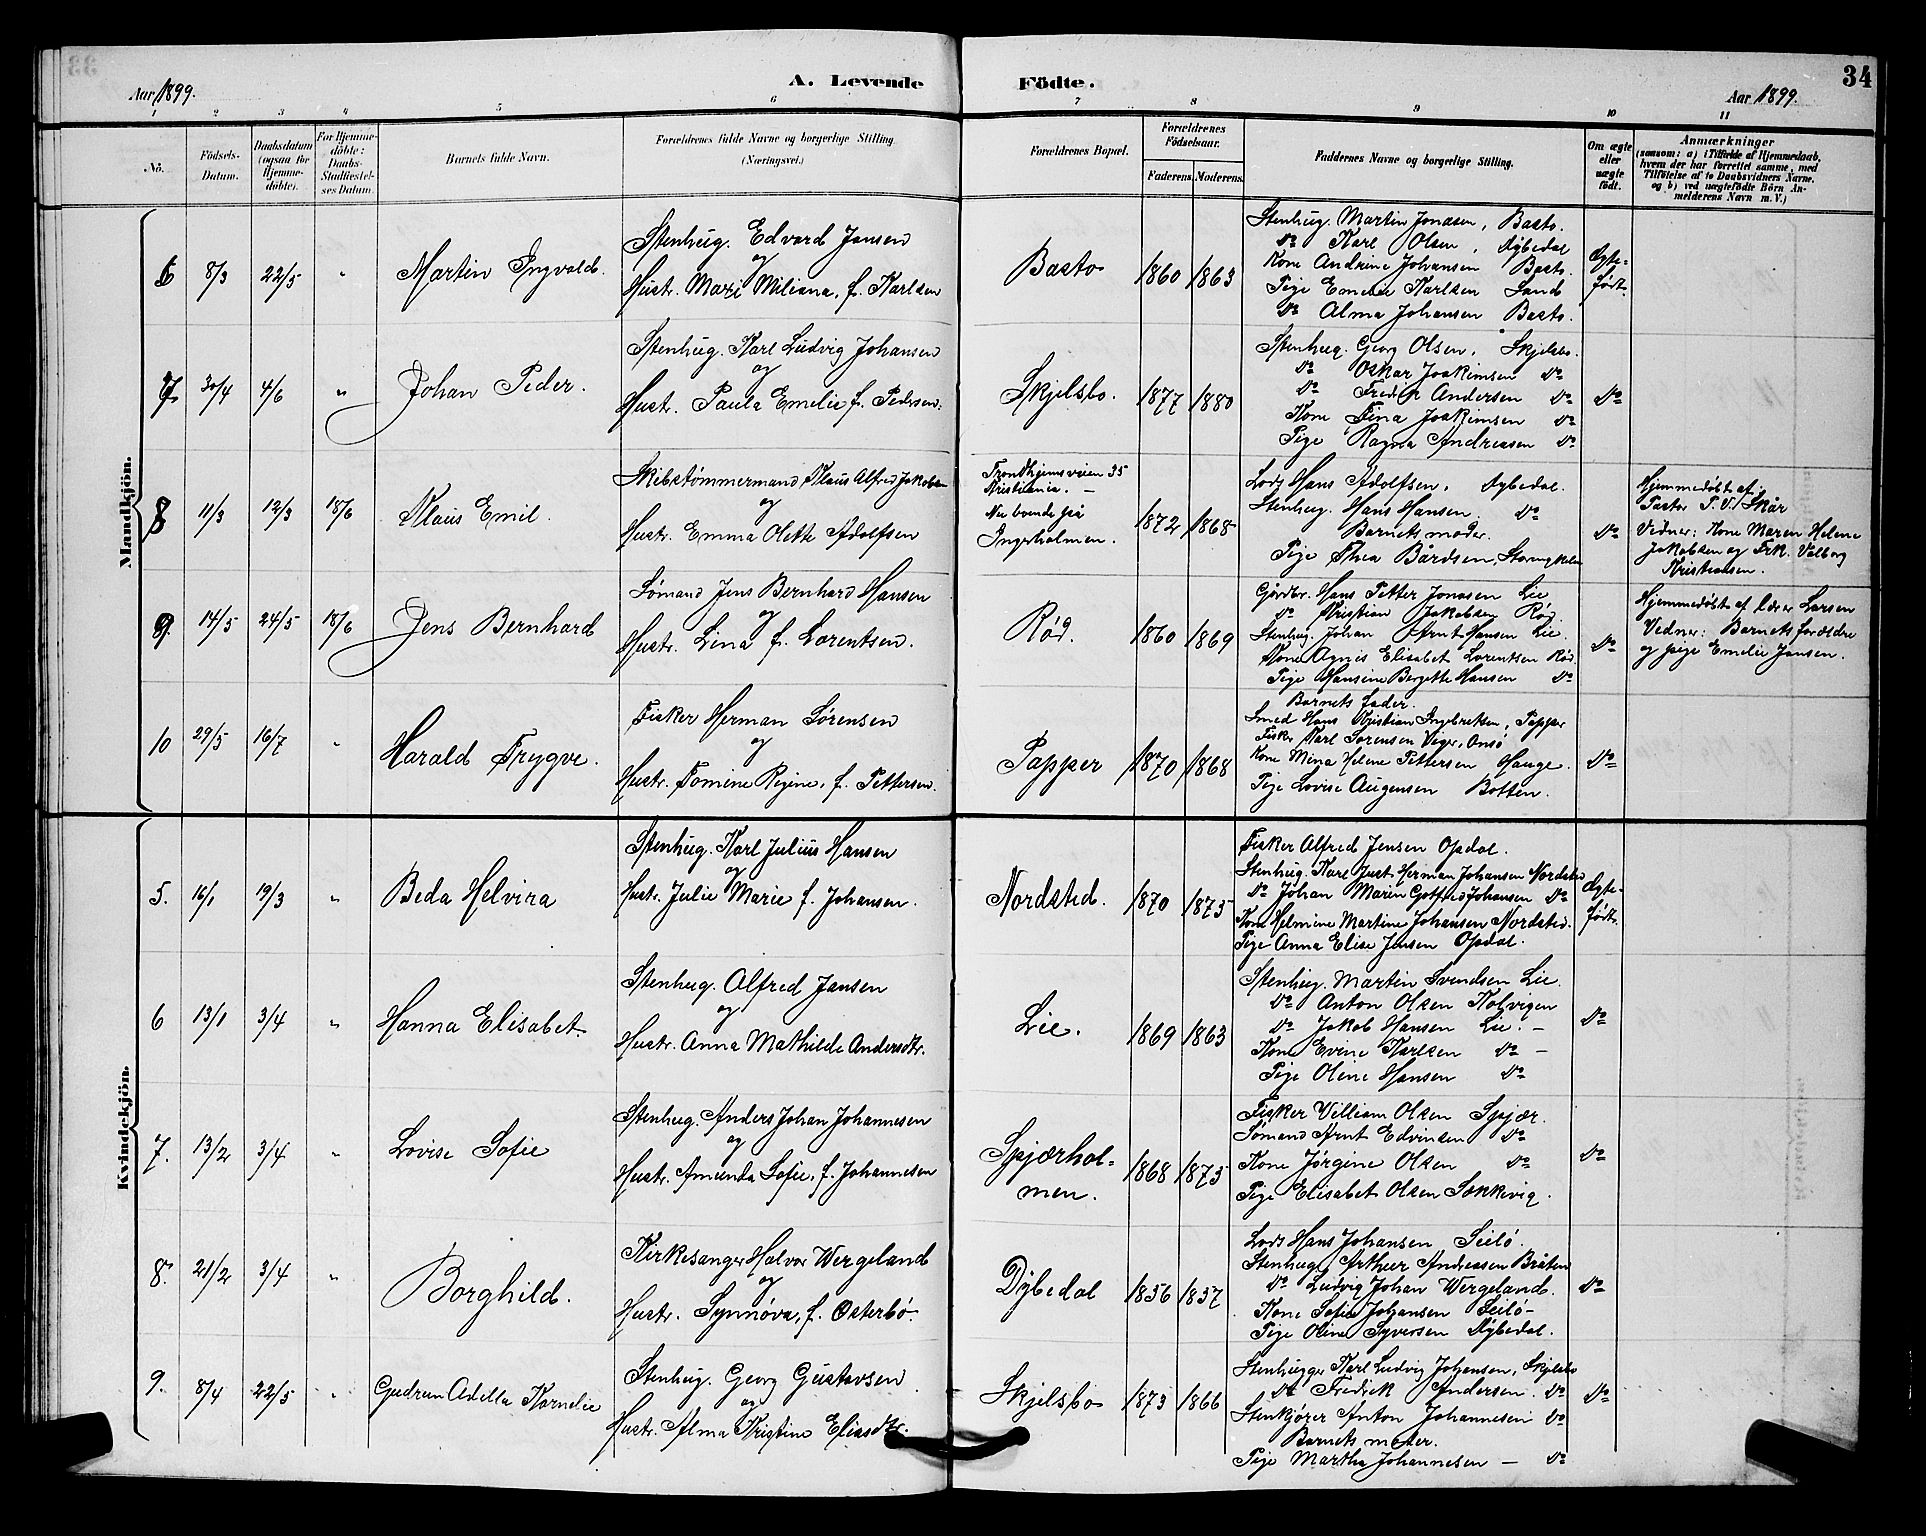 A. Levende Födte. 34
Aar 1899. Aar 1899.
1 2 3 4 5 6 7 8 9 10 11
No.
Födsels-
Datum.
Daabsdatum
(ogsaa for
Hjemme-
döbte).
For Hjemme-
döbte:
Daabs-
Stadfæstel-
ses Datum.
Barnets fulde Navn.
Forældrenes fulde Navne og borgerlige Stilling
(Næringsvei.)
Forældrenes Bopæl.
Forældrenes
Födselsaar.
Faderens. Moderens.
Faddernes Navne og borgerlige Stilling.
Om ægte
eller
uægte
födt.
Anmærkninger
(saasom: a) i Tilfælde af Hjemmedaab,
hvem der har forrettet samme, med
Tilföielse af to Daabsvidners Navne.
og b) ved uægtefödte Börn An-
melderens Navn m. V.)
Mandkjön.
6 8/3 22/5 " Martin Ingvald.
Stenhug. Edvard Jansen
og
Hustr. Mari Miliana, f. Karlsen
Basto 1860 1863
Stenhug. Martin Jonasen, Basto.
Do Karl Olsen, Dybedal
Kone Andrine Johansen Basto.
Pige Emelie Karlsen Sand
Do Alma Johansen Basto.
Ægte-
født.
7 30/4 4/6 " Johan Peder.
Stenhug. Karl Ludvig Johansen
og
Hustr. Paula Emelie f. Pedersen.
Skjelsbo. 1877 1880
Stenhug. Georg Olsen, Skjelsbo.
Do Oskar Joakimsen Do
Do Fredrik Andersen Do
Kone Fina Joakimsen Do
Pige Ragna Andreasen Do
Do
8 11/3 12/3 18/6 Klaus Emil.
Skibstømmermand Klaus Alfred Jakobsen
og
Hustr. Emma Olette Adolfsen
Trondhjemsveien 35
Kristiania. –
Nu boende på
Ingerholmen.
1872 1868
Lods Hans Adolfsen, Dybedal.
Stenhug. Hans Hansen. Do
Barnets moder.
Pige Thea Bårdsen,
Do
Hjemmedøbt af
Pastor T. V. Skår
Vidner: Kone Maren Helene
Jakobsen og Frk. Valborg
Kristiansen.
9. 14/5 24/5 18/6 Jens Bernhard
Sømand Jens Bernhard Hansen
og
Hustr. Lina f. Lorentsen.
Rød. 1860 1869
Gårdbr. Hans Petter Jonasen Lie
Do Kristian Jakobsen Rød.
Stenhug. Johan Arnt Hansen Lie.
Kone Agnes Elisabet Lorentsen Rød.
Pige Hansine Bergette Hansen Do
Do
Hjemmedøbt af lærer Larsen
Vidner: Barnets forældre
og pige Emelie Jansen.
10 29/5 16/7 " Harald Trygve.
Fisker Herman Sørensen
og
Hustr. Tomine Regine, f. Pettersen.
Papper 1870 1868
Barnets fader.
Smed Hans Kristian Ingebretsen, Papper
Fisker Karl Sorensen Viger, Onsö
Kone Mina Helene Pettersen Hauge.
Pige Lovise Augensen Botten.
Do
Kvindekjön.
5. 16/1 19/3 " Beda Helvira
Stenhug. Karl Julius Hansen
og
Hustr. Julie Marie f. Johansen.
Nordsted. 1870 1875
Fisker Alfred Jensen Opdal.
Stenhug. Karl Just Herman Johansen Nordsted
Do Johan Marin Gotfred Johansen Do
Kone Helmine Martine Johansen Nordsted.
Pige Anna Elise Jensen Opdal.
Ægte-
født.
6 13/1 3/4 " Hanna Elisabet.
Stenhug. Alfred Jansen
og
Hustr. Anna Mathilde Andersdtr.
Lie. 1869 1863
Stenhug. Martin Svendsen Lie.
Do Anton Olsen Kolvigen
Do Jakob Hansen Lie. –
Kone Evine Karlsen Do –
Pige Oline Hansen Do
Do
7. 13/2 3/4 " Lovise Sofie
Stenhug. Anders Johan Johannesen
og
Hustr. Amunda Sofie, f. Johannesen
Spjærhol-
men.
1868 1875
Fisker Villiam Olsen Spjær.
Sømand Arnt Edvinsen Do
Kone Jørgine Olsen Do
Pige Elisabet Olsen Søkkevig.
Do
8. 21/2 3/4 " Borghild.
Kirkesanger Halvor Wergeland
og
Hustr. Synnøva, f. Østerbö.
Dybedal 1856 1857
Lods Hans Johansen Seilö.
Stenhug. Arthur Andreasen Bråten
Do Ludvig Johan Wergeland.
Kone Sofie Johansen Seilö –
Pige Oline Syversen Dybedal.
Do
9. 8/4 22/5 " Gudrun Adella Kornelie
Stenhug. Georg Gustavsen
og
Hustr. Alma Kristine Eliasdtr.
Skjelsbo 1873 1866
Stenhugger Karl Ludvig Johansen, Skjelsbo
Do Fredrik Andersen. Do
Stenkjører Anton Johannesen Do
Barnets moder.
Pige Martha Johannesen – Do
Do